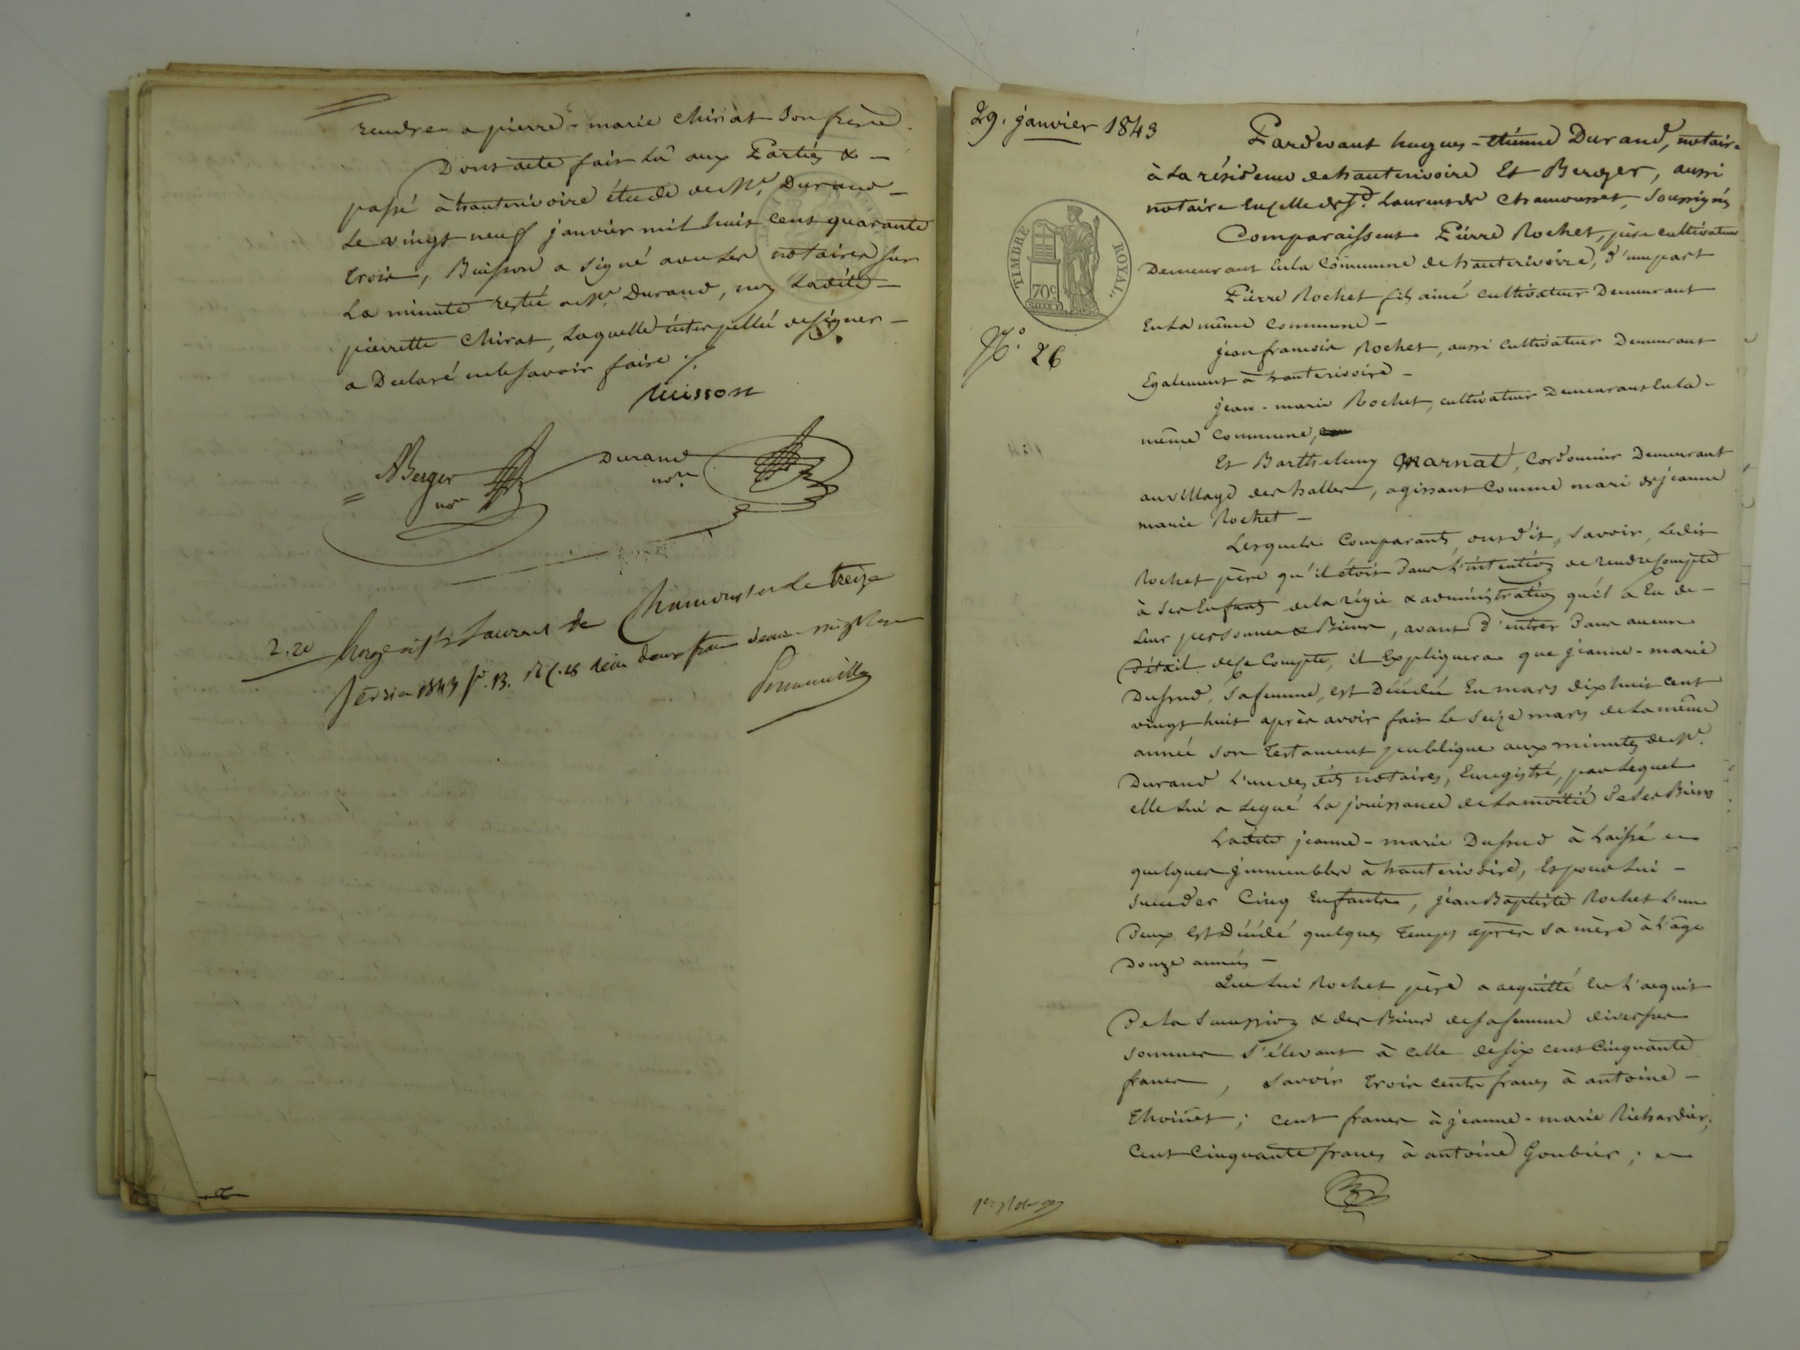 rendre a pierre-marie Chirat Son frère.
Dont acte fait Lu aux Parties &
passé à hauterivoire étude de Me. Durand
Le vingt neuf janvier mil huit cent quarante
trois, Buisson a Signé avec les notaires sur
La minute restée a Me. Durand, non Ladite
pierrette Chirat, Laquelle interpellée de signer
a Déclaré ne le Savoir faire ./.
Buisson
ABerger
nore
Durand
nore
2.20
Enregistré à St Laurent de Chamousset le treize
février 1843 fo. 13. Ro C. 28 reçu deux francs
29. janvier 1843
Pardevant hugues-étienne Durand, notaire
à La résidence de hauterivoire Et Berger, aussi
notaire En celle de St. Laurent de Chamousset, Soussignés
TIMBRE ROYAL.
70c
No. 26
Comparaissent Pierre Rochet, père cultivateur
Demeurant En la Commune de hauterivoire, d'une part
Pierre Rochet fils ainé cultivateur Demeurant
En La même Commune -
jean francois Rochet, aussi cultivateur Demeurant
Egalement à hauterivoire -
jean-marie Rochet, cultivateur Demeurant En La -
même Commune,
Et Barthelemy Marnat, Cordonnier Demeurant
au village des halles, agissant Comme mari de jeanne
marie Rochet -
Lesquels Comparants ont dit, Savoir, Ledit
Rochet père qu'il étoit Dans L'intention de rendre Compte
à Ses Enfants de la régie & administration qu'il a Eu de -
Leur personne & Biens, avant D'entrer Dans aucun
Détail de ce Compte, il Expliquera que jeanne-marie
Dussud, Sa femme, est Décédée En mars dix huit cent
vingt huit après avoir fait Le Seize mars de La même
année Son Testament publique aux minutes de Me.
Durand L'un des dits notaires, Enregistré, par Lequel
elle Lui a Légué La jouissance de La moitié De Ses Biens
Ladite jeanne-marie Dussud à Laissé
quelques immeubles à hauterivoire, Et pour Lui -
Succéder Cinq Enfants, jean Baptiste Rochet L'un
Deux Est Décédé quelques Temps après Sa mère à L'âge
Donze années -
Que Lui Rochet père a acquitté En L'acquit
De La Succession & des Biens de Sa femme diverses
Sommes S'élevant à celle de Six cent Cinquante
francs, Savoir trois cents francs à antoine -
Thoinet ; Cent francs à jeanne-marie Richardier,
Cent Cinquante francs à antoine Goubier ;